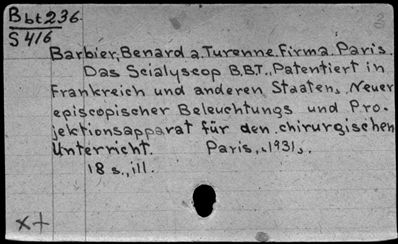 Bbt236
S416
Barbier, Benard a. Turenne. Firma. Paris.
Das Scialyscop B.B.T., Patentiert in
Frankreich und anderen Staaten. Neuer
episcopischer Beleuchtungs und Pro-
jektionsapparat für den chirurgischen
Unterricht. Paris, 1931.
18 s., ill.
x+